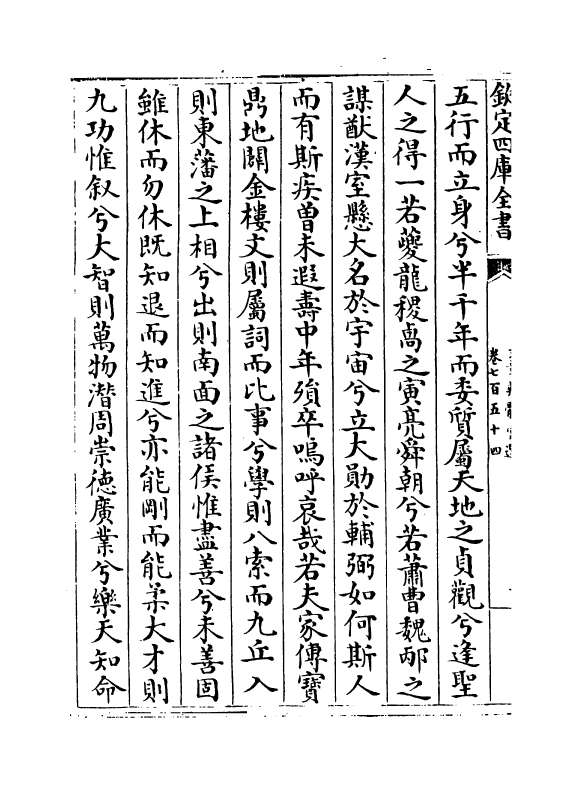 欽定四庫全書
卷七百五十四
五行而立身兮半千年而委質屬天地之貞觀兮逢聖
人之得一若夔龍稷卨之寅亮舜朝兮若蕭曹魏邴之
謀猷漢室懸大名於宇宙兮立大勛於輔弼如何斯人
而有斯疾曽未遐壽中年殞卒嗚呼哀哉若夫家傳寶
鼎地闢金樓文則屬詞而比事兮學則八索而九丘入
則東藩之上相兮出則南面之諸侯惟盡善兮未善固
雖休而勿休既知退而知進兮亦能剛而能柔大才則
九功惟叙兮大智則萬物潛周崇徳廣業兮樂天知命